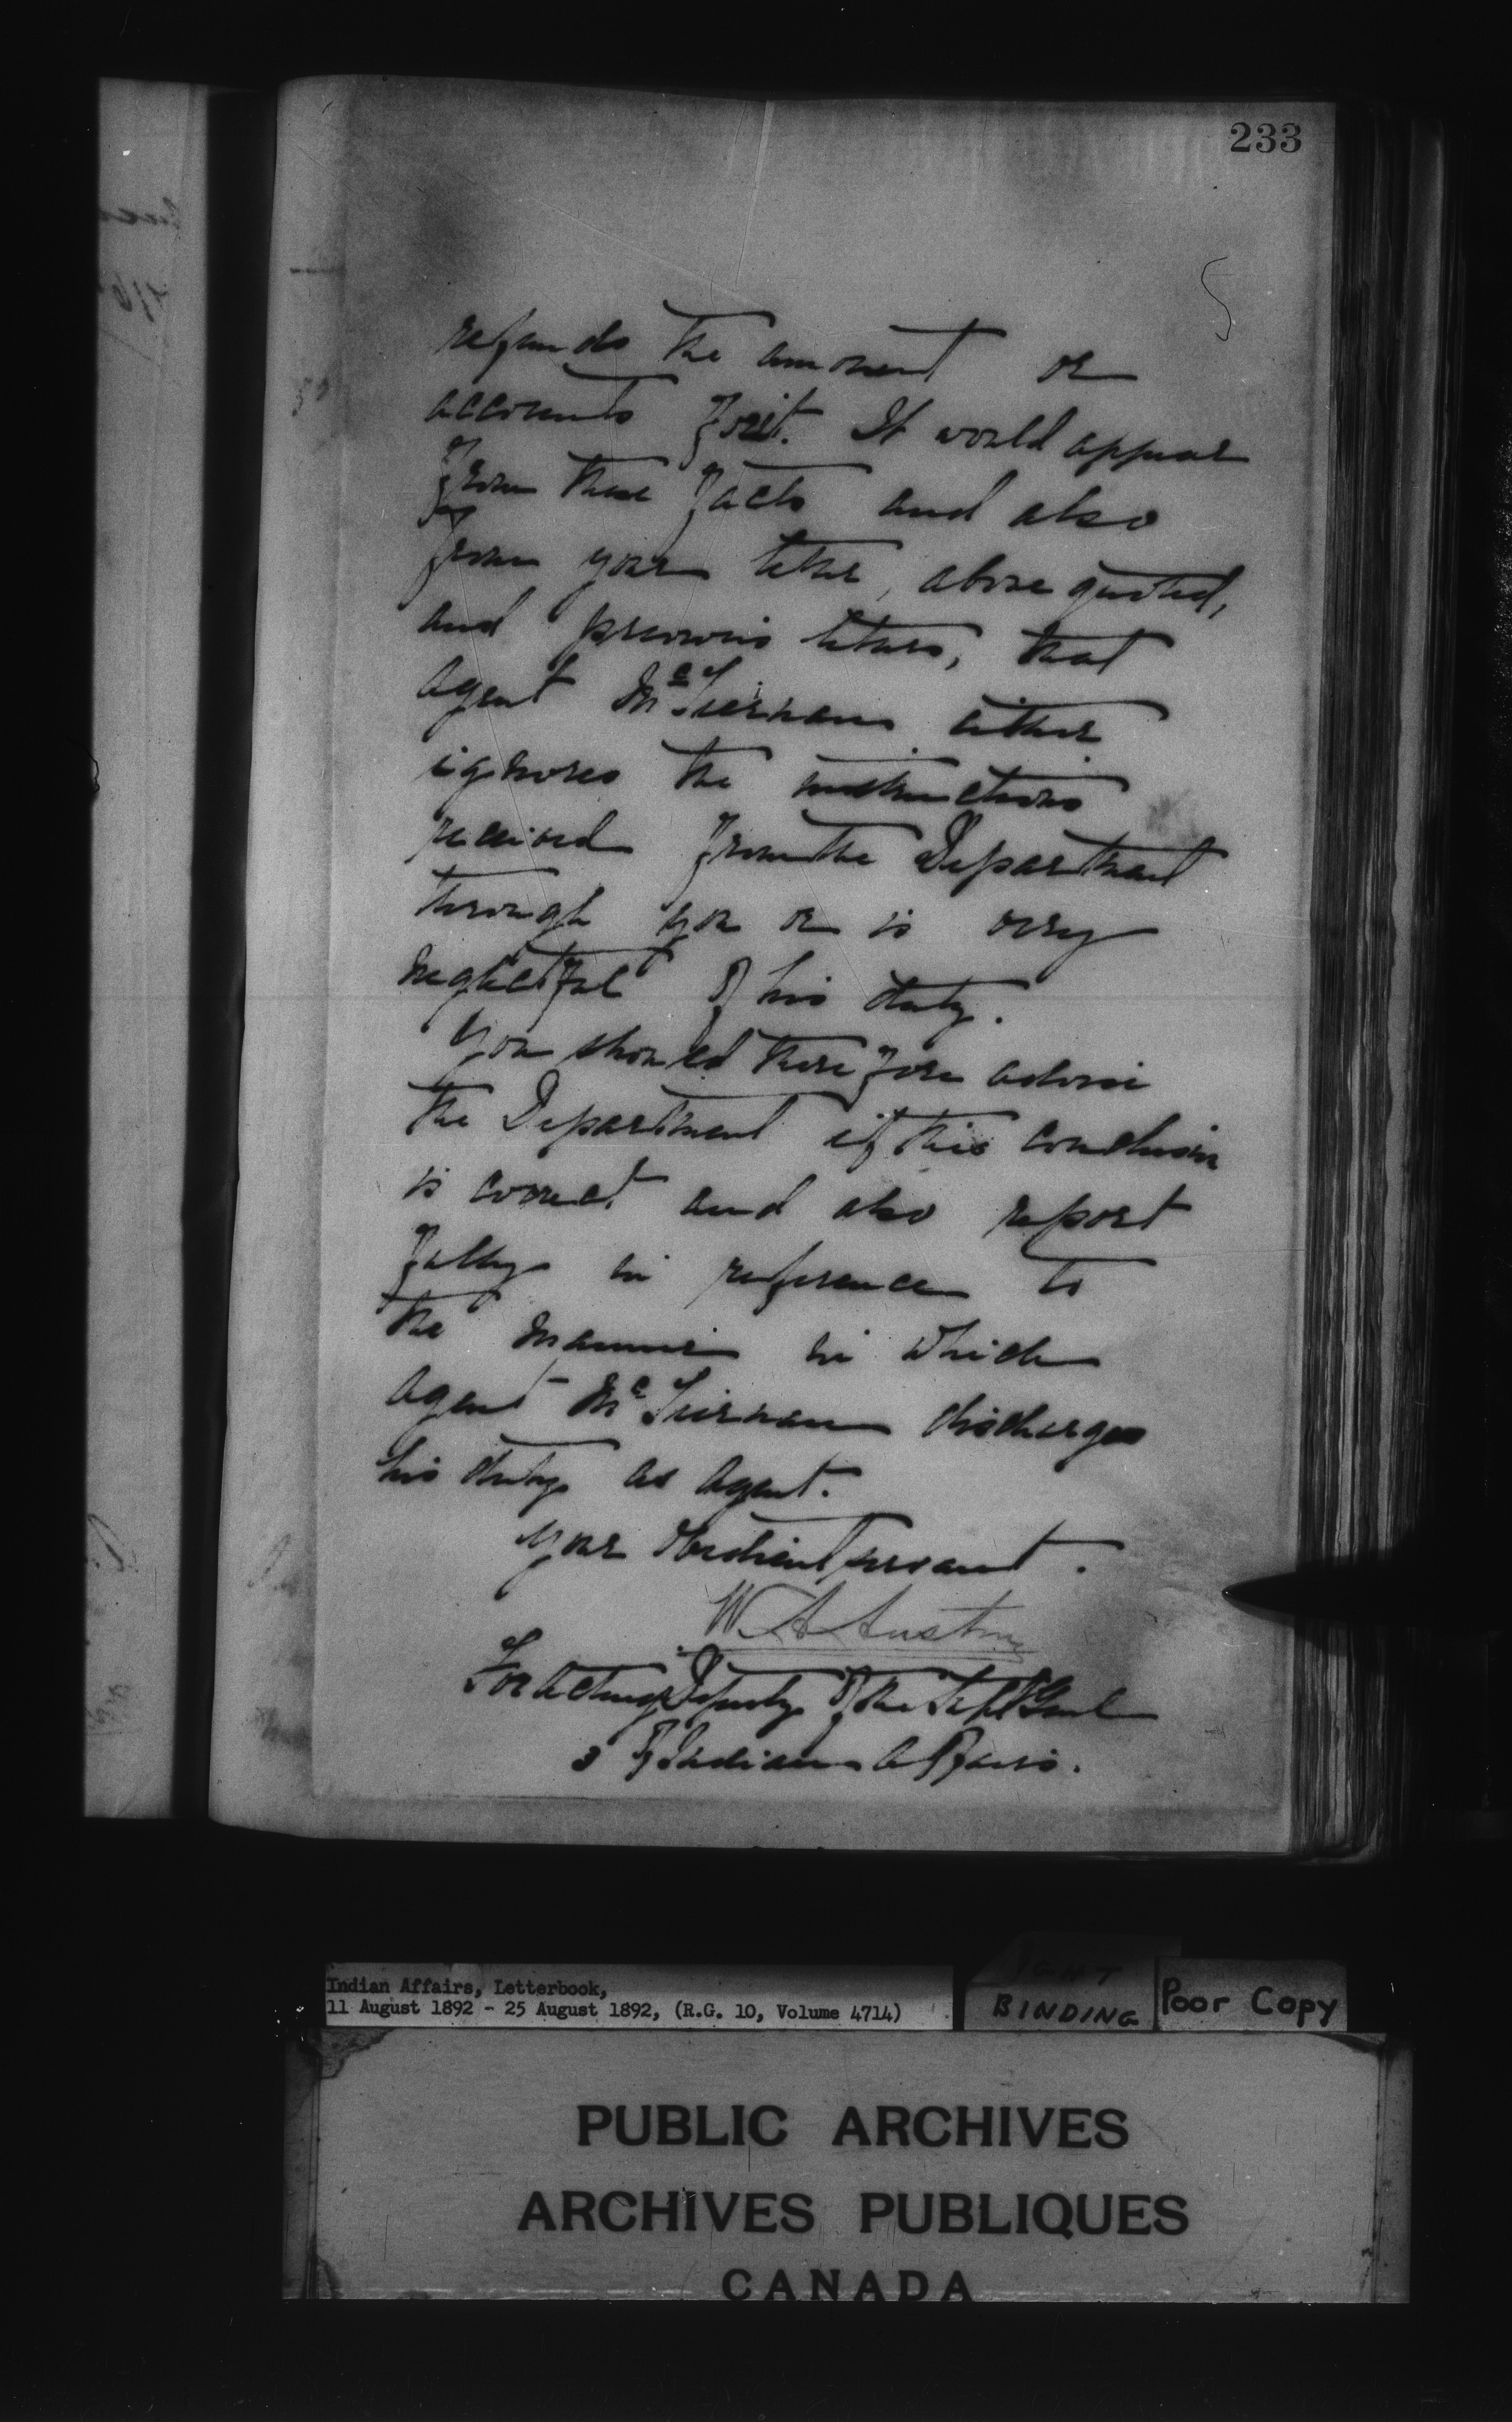 233
5
refunds the amount or
accounts for it. It would appear
from these facts and also
from your letter, above quoted,
and previous letters, that
Agent McTiernan either
ignores the instructions
received from the Department
through you or is very
neglectful of his duty.
You should therefore advise
the Department if this conclusion
is correct and also report
fully in reference to
the manner in which
Agent McTiernan discharges
his duty as Agent.
Your obedient servant.
W. A. Austin
For Acting Deputy of the Supt Genl
of Indian Affairs.
Indian Affairs, Letterbook,
11 August 1892 - 25 August 1892, (R.G. 10, Volume 4714)
BINDING
Poor Copy
PUBLIC ARCHIVES
ARCHIVES PUBLIQUES
CANADA